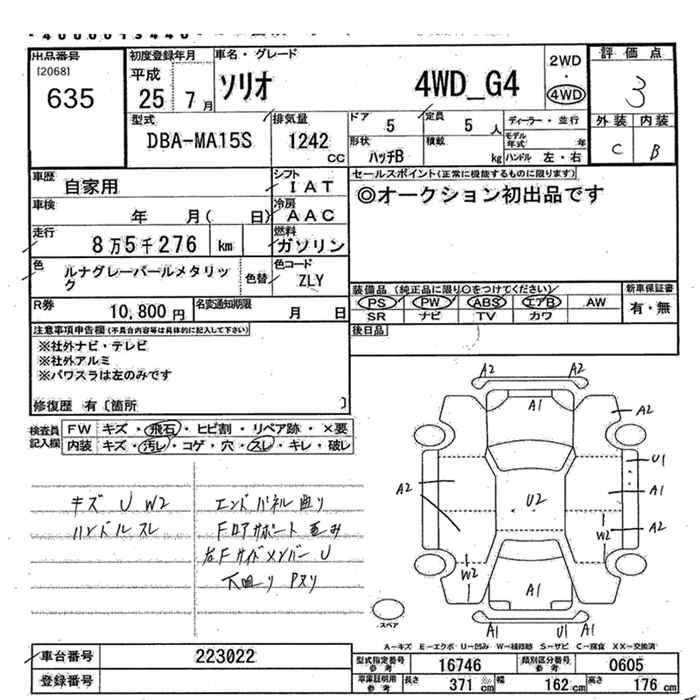 出品番号
[2068]
635
初度登録年月
平成
25 7 月
車名・グレード
ソリオ 4WD_G4
2WD
・
4WD
評価点
3
外装 内装
C B
型式
DBA-MA15S
排気量
1242
cc
ドア 5
定員 5 人
形状 ハッチB
積載 kg
ディーラー・並行
モデル年式 年
ハンドル 左・右
車歴 自家用
シフト IAT
車検 年 月( 日)
冷房 AAC
走行 8万5千276 km
燃料 ガソリン
色 ルナグレーパールメタリック
色替
色コード ZLY
R券 10,800円
名変通知期限 月 日
セールスポイント(正常に機能するものに限ります)
◎オークション初出品です
装備品 (純正品に限り○をつけてください)
PS PW ABS エアB AW
SR ナビ TV カワ
新車保証書
有・無
後日品
注意事項申告欄(不具合内容等は具体的に記入して下さい)
※社外ナビ・テレビ
※社外アルミ
※パワスラは左のみです
修復歴 有〔箇所 〕
検査員記入欄
FW キズ・飛石・ヒビ割・リペア跡・×要
内装 キズ・汚レ・コゲ・穴・スレ・キレ・破レ
キズ U W2
ハンドルスレ
エンドパネル曲り
Fロアサポート歪み
右Fサイドメンバー U
下回り Pヌリ
A2 A2
A1
A2
U1
A2
A1
U2
A2
W2
W2
A1
A1 U1 A1
スペア
A-キズ E-エクボ U-凹み W-補修跡 S-サビ C-腐食 XX-交換済
車台番号 223022
登録番号
型式指定番号 参考 16746
類別区分番号 参考 0605
車庫証明用 参考 長さ 371 cm 幅 162 cm 高さ 176 cm